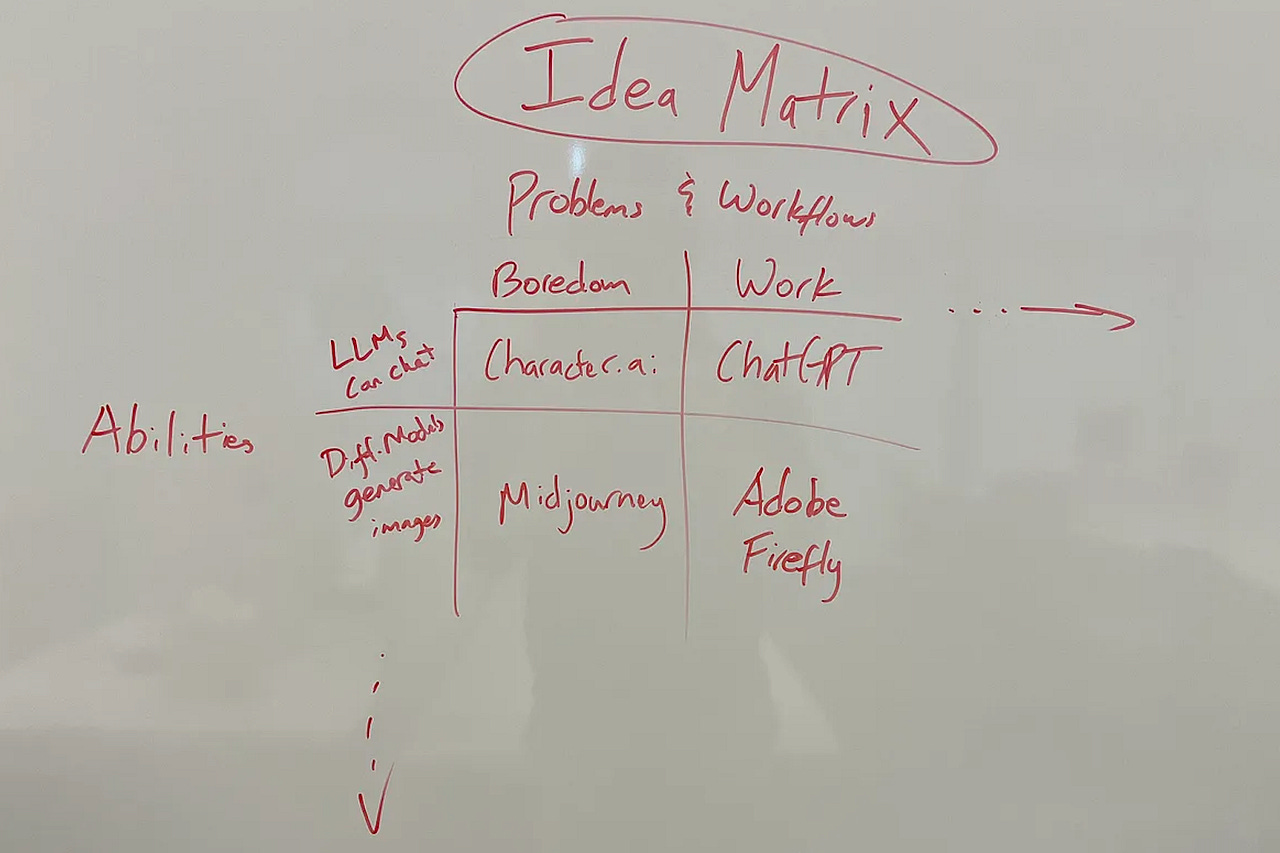 Idea Matrix
Problems & Workflows
Boredom Work
LLMs
can chat
Character.ai
ChatGPT
Abilities
Diff. Models
generate
images
Midjourney
Adobe
Firefly